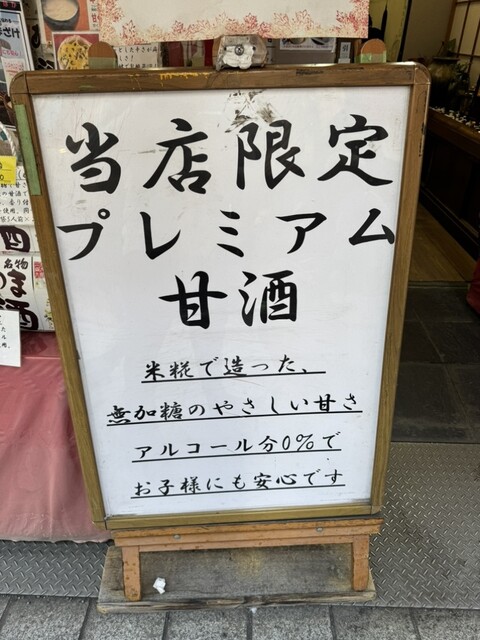 当店限定
プレミアム
甘酒
米糀で造った、
無加糖のやさしい甘さ
アルコール分0%で
お子様にも安心です
名物